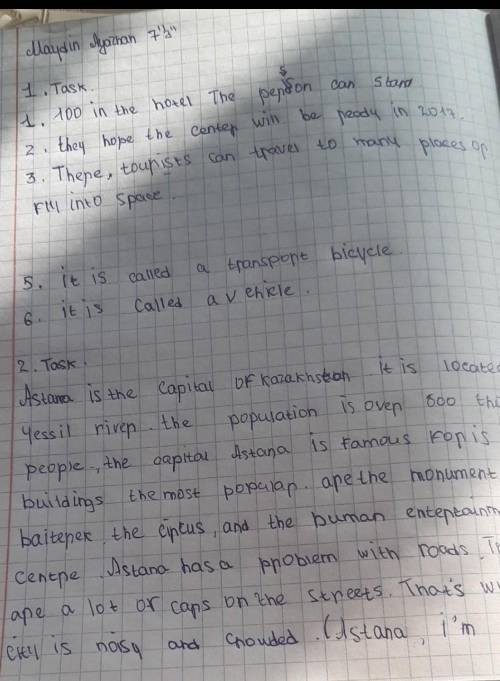 Maydin Ayazhan 7"з"
1. Task.
1. 100 in the hotel The person can stand
2. they hope the center will be ready in 2017.
3. There, tourists can travel to many places or
fill into space.
5. it is called a transport bicycle.
6. it is called a vehicle.
2. Task.
Astana is the capital of kazakhstan it is located
Yessil river. the population is over 600 tho
people, the capital Astana is famous for is
buildings the most popular. are the monument
baiterek, the circus, and the buman entertainm
centre. Astana has a problem with roads. Th
are a lot of cars on the streets. That's wh
city is noisy and crouded. (Astana, i'm